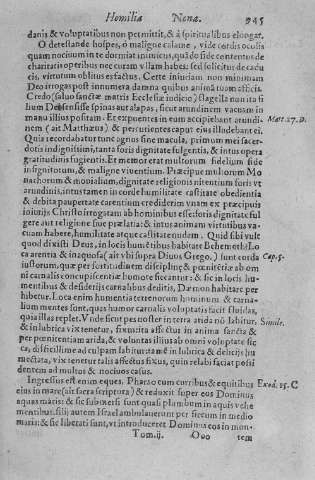 Homiliæ Nonæ. 945
danis & voluptatibus non permittit, & à spiritualibus elongat.
O detestande hospes, ô maligne calune, vide cordis oculis
quam nociuum in te dormiat inimicus, qua de side contentus de
charitatis operibus nec curam vllam habes, sed solicitudine caducis
cis, virtutum oblitus es factus. Certe iniuriam non minimam
Deo irrogas post innumera damna quibus animā tuam afficis.
Credo (saluo sanctæ matris Ecclesiæ iudicio) flagella non ita fi
lium Dei sensisse spinas aut alapas, sicut arundinem vacuam in
manu illius positam. Et expuentes in eum acceperunt arundi-
nem (ait Matthæus) & percutientes caput eius illudebant ei. Mat. 27. D.
Quia recordabatur tunc agnus sine macula, primum mei sacer-
dotis indignissimi, tanta foris dignitate fulgentis, & intus opera
gratitudinis fugientis. Et memor erat multorum fidelium fide
insignitorum, & maligne viuentium. Præcipue multorum Mo
nachorum & monialium, dignitate religionis nitentium foris vt
arundinis, intus tamen in corde humilitate castitate obedientia
& debita paupertate carentium crediderim vnam ex præcipuis
iniurijs Christo irrogatam ab hominibus esse: foris dignitate ful
gere aut religione siue prælatia: & intus animam virtutibus va-
cuam habere, humilitate atque castitate nudam. Quid sibi vult
quod dixisti Deus, in locis humētibus habitare Behemoth? Lo
ca arentia & inaquosa (ait vbi supra Diuus Grego.) sunt corda Cap. 5.
iustorum, quæ per fortitudinem disciplinæ & pœnitētiæ ab om
ni carnalis concupiscentiæ humore siccantur: & sic in locis hu-
mentibus & desiderijs carnalibus deditis, Dæmon habitare per
hibetur. Loca enim humentia terrenorum hominum & carna-
lium mentes sunt, quas humor carnalis voluptatis facit fluidas,
quia illas replet. Vnde sicut pes noster in terra arida nō labitur, Simile.
& in lubrica vix tenetur, fixmuita affectus in anima sancta &
per pœnitentiam arida, & voluntas illius ab omni voluptate sic
ca, difficillime ad culpam labitur: ita mē in lubrica & delicijs hu
mectata, vix tenetur talis affectus fixus, quin relabi faciat possi
dentem ad multos & nociuos casus.
Ingressus est enim eques Pharao cum curribus & equitibus Exod. 15. C
eius in mare (ait sacra scriptura) & reduxit super eos Dominus
aquas maris: & sic submersi sunt quasi plumbum in aquis vehe
mentibus. filij autem Israel ambulauerunt per siccum in medio
maris: & sic liberati sunt, vt introduceret Dominus eos in mon-
Tom. ij. Ooo tem